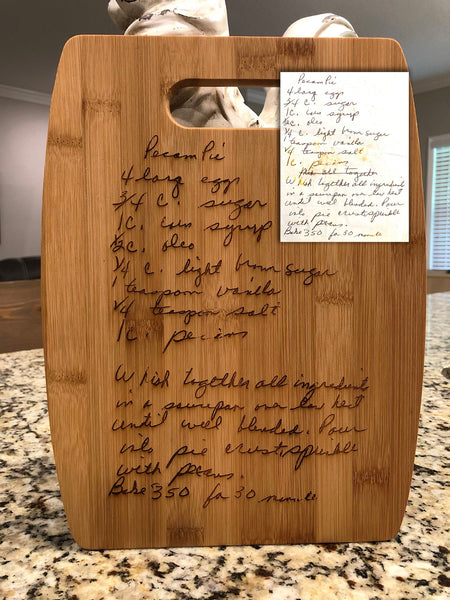 Pecam Pie
4 larg eggs
3/4 C. sugar
1 C. corn syrup
1/2 C. oleo
1/4 C. light brown sugar
1 teaspoon vanilla
1/4 teaspoon salt
1 C. pecans
Whish together all ingredient
in a saucepan over low heat
until well blended. Pour
into pie crust, sprinkle
with pecans.
Bake 350 for 30 minute
Pecam Pie
4 larg eggs
3/4 C. sugar
1 C. corn syrup
1/2 C. oleo
1/4 C. light brown sugar
1 teaspoon vanilla
1/4 teaspoon salt
1 C. pecans
all together
Whish together all ingredient
in a saucepan over low heat
until well blended. Pour
into pie crust, sprinkle
with pecans.
Bake 350 for 30 minute